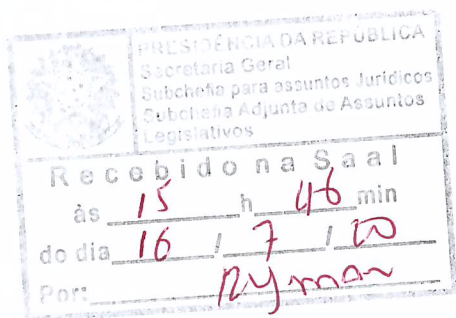 PRESIDÊNCIA DA REPÚBLICA
Secretaria Geral
Subchefia para assuntos Jurídicos
Subchefia Adjunta de Assuntos
Legislativos
Recebido na Saal
às 15 h 46 min
do dia 16 / 7 / 20
Por: